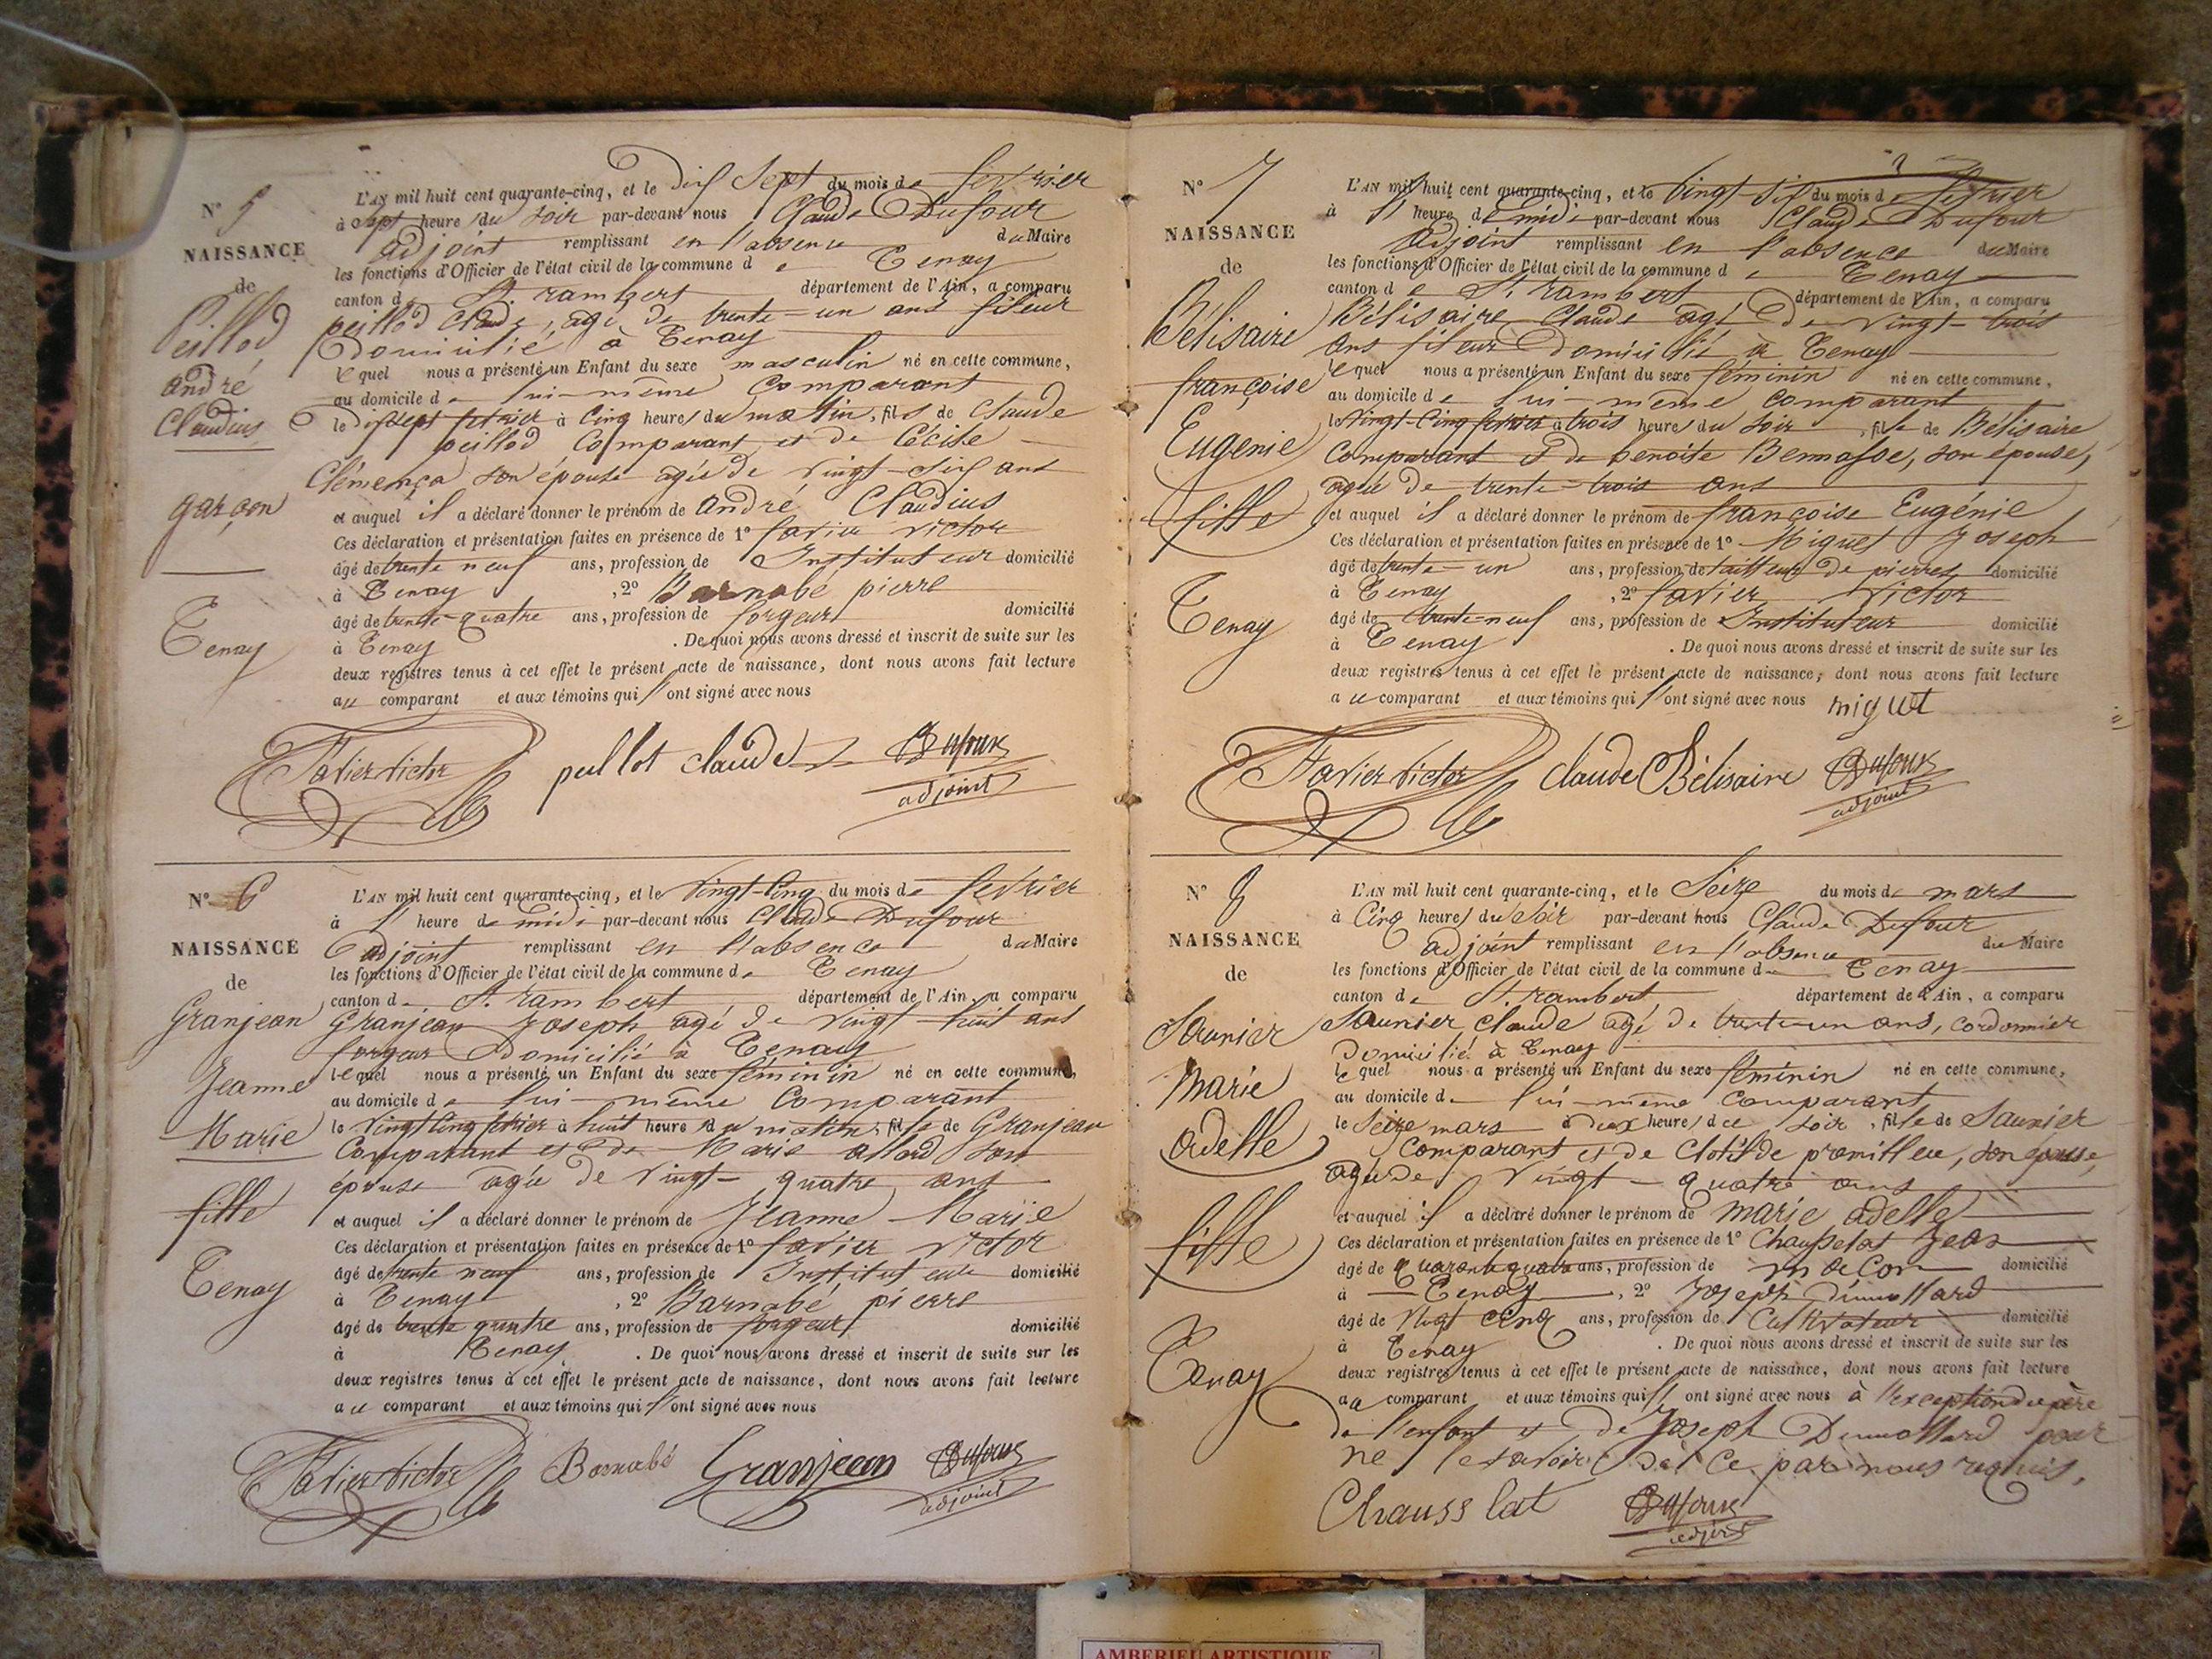 N° 5
NAISSANCE
de
Peillod
andré
Claudius
garçon
Tenay
L'AN mil huit cent quarante-cinq, et le dix sept du mois de février
à sept heures du soir par-devant nous Claude Dufour
adjoint remplissant en l'absence du Maire
les fonctions d'Officier de l'état civil de la commune de Tenay
canton de St. rambert département de l'Ain, a comparu
peillod Claude, agé de trente-un ans fileur
domicilié à Tenay
lequel nous a présenté un Enfant du sexe masculin né en cette commune,
au domicile de lui-même Comparant
le dix sept février à Cinq heures du matin, fils de Claude
peillod Comparant et de Cécile
Clémença son épouse agée de vingt-six ans
et auquel il a déclaré donner le prénom de andré Claudius
Ces déclaration et présentation faites en présence de 1° favier victor
âgé de trente neuf ans, profession de Instituteur domicilié
à Tenay, 2° Barnabé pierre
âgé de trente-quatre ans, profession de forgeur domicilié
à Tenay. De quoi nous avons dressé et inscrit de suite sur les
deux registres tenus à cet effet le présent acte de naissance, dont nous avons fait lecture
au comparant et aux témoins qui l'ont signé avec nous
Favier victor peillot claude Dufour
adjoint
N° 6
NAISSANCE
de
Granjean
Jeanne
Marie
fille
Tenay
L'AN mil huit cent quarante-cinq, et le vingt-Cinq du mois de février
à l' heure de midi par-devant nous Claude Dufour
adjoint remplissant en l'absence du Maire
les fonctions d'Officier de l'état civil de la commune de Tenay
canton de St. rambert département de l'Ain, a comparu
Granjean Joseph agé de vingt-huit ans
forgeur domicilié à Tenay
lequel nous a présenté un Enfant du sexe féminin né en cette commune,
au domicile de lui-même Comparant
le vingt Cinq février à huit heures du matin, fille de Granjean
Comparant et de Marie allard son
épouse agée de vingt-quatre ans
et auquel il a déclaré donner le prénom de Jeanne Marie
Ces déclaration et présentation faites en présence de 1° favier victor
âgé de trente neuf ans, profession de Instituteur domicilié
à Tenay, 2° Barnabé pierre
âgé de trente quatre ans, profession de forgeur domicilié
à Tenay. De quoi nous avons dressé et inscrit de suite sur les
deux registres tenus à cet effet le présent acte de naissance, dont nous avons fait lecture
au comparant et aux témoins qui l'ont signé avec nous
Favier victor Barnabé Granjean Dufour
adjoint
N° 7
NAISSANCE
de
Bélisaire
françoise
Eugénie
fille
Tenay
L'AN mil huit cent quarante-cinq, et le vingt-six du mois de février
à l' heure de midi par-devant nous Claude Dufour
adjoint remplissant en l'absence du Maire
les fonctions d'Officier de l'état civil de la commune de Tenay
canton de St. rambert département de l'Ain, a comparu
Bélisaire Claude agé de vingt-trois
ans fileur domicilié à Tenay
lequel nous a présenté un Enfant du sexe féminin né en cette commune,
au domicile de lui-même comparant
le vingt-Cinq février à trois heures du soir, fille de Bélisaire
Comparant et de benoite Bennasse, son épouse,
agée de trente-trois ans
et auquel il a déclaré donner le prénom de françoise Eugénie
Ces déclaration et présentation faites en présence de 1° Miguet Joseph
âgé de trente-un ans, profession de tailleur de pierres domicilié
à Tenay, 2° favier victor
âgé de trente-neuf ans, profession de Instituteur domicilié
à Tenay. De quoi nous avons dressé et inscrit de suite sur les
deux registres tenus à cet effet le présent acte de naissance, dont nous avons fait lecture
au comparant et aux témoins qui l'ont signé avec nous miguet
Favier victor Claude Bélisaire Dufour
adjoint
N° 8
NAISSANCE
de
Saunier
Marie
adelle
fille
Tenay
L'AN mil huit cent quarante-cinq, et le Seize du mois de mars
à Cinq heures du soir par-devant nous Claude Dufour
adjoint remplissant en l'absence du Maire
les fonctions d'Officier de l'état civil de la commune de Tenay
canton de St. rambert département de l'Ain, a comparu
Saunier Claude agé de trente-un ans, cordonnier
domicilié à Tenay
lequel nous a présenté un Enfant du sexe féminin né en cette commune,
au domicile de lui-même comparant
le Seize mars à deux heures du soir, fille de Saunier
Comparant et de Clotilde, son épouse,
agée de vingt-quatre ans
et auquel il a déclaré donner le prénom de marie adelle
Ces déclaration et présentation faites en présence de 1° Chausselat Jean
âgé de quarante quatre ans, profession de maçon domicilié
à Tenay, 2° Joseph Dumollard
âgé de vingt cinq ans, profession de Cultivateur domicilié
à Tenay. De quoi nous avons dressé et inscrit de suite sur les
deux registres tenus à cet effet le présent acte de naissance, dont nous avons fait lecture
au comparant et aux témoins qui l'ont signé avec nous à l'exception du père
de l'enfant et de Joseph Dumollard pour
ne le savoir de ce par nous requis,
Chausslat Dufour
adjoint
AMBERIEU ARTISTIQUE